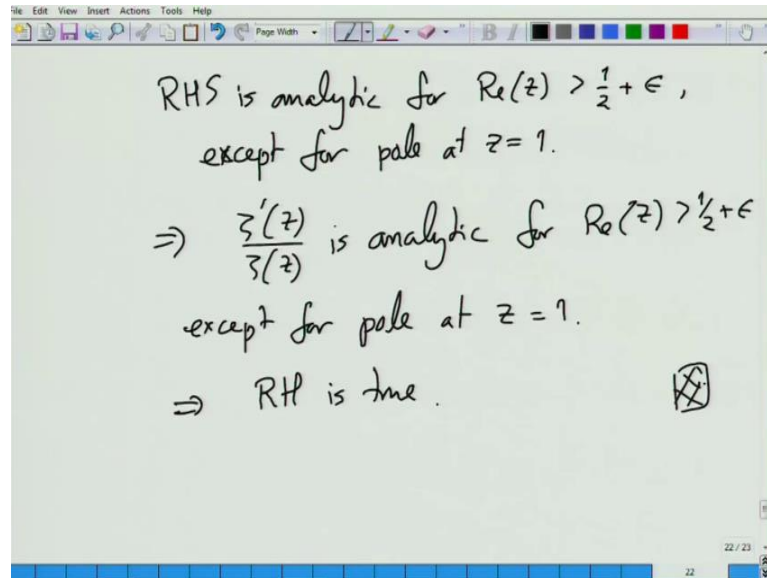 File Edit View Insert Actions Tools Help
Page Width
RHS is analytic for Re(z) > 1/2 + ϵ,
except for pole at z = 1.
⇒ ζ'(z)/ζ(z) is analytic for Re(z) > 1/2 + ϵ
except for pole at z = 1.
⇒ RH is true.
22 / 23
22